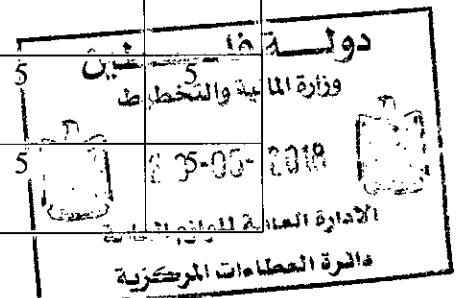 دولـــة فلسطين
5 5
وزارة المالية والتخطيط
5 05-06- 2018
الادارة العامة للوازم العامة
دائرة العطاءات المركزية